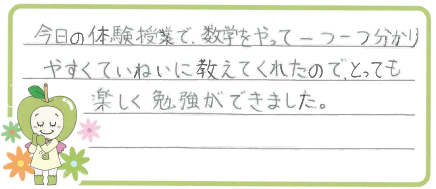 今日の体験授業で、数学をやって一つ一つ分かり
やすくていねいに教えてくれたので、とっても
楽しく勉強ができました。